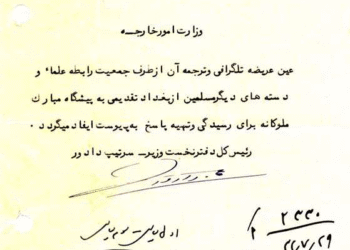 وزارت امور خارجه
عین عریضه تلگرافی و ترجمه آن از طرف جمعیت رابطه علماء و
دسته های دیگر مسلمین از بغداد تقدیمی به پیشگاه مبارک
ملوکانه برای رسیدگی و تهیه پاسخ به پیوست ایفاد میگردد .
رئیس کل دفتر نخست وزیر - سرتیپ دادور
۲۳۳۰